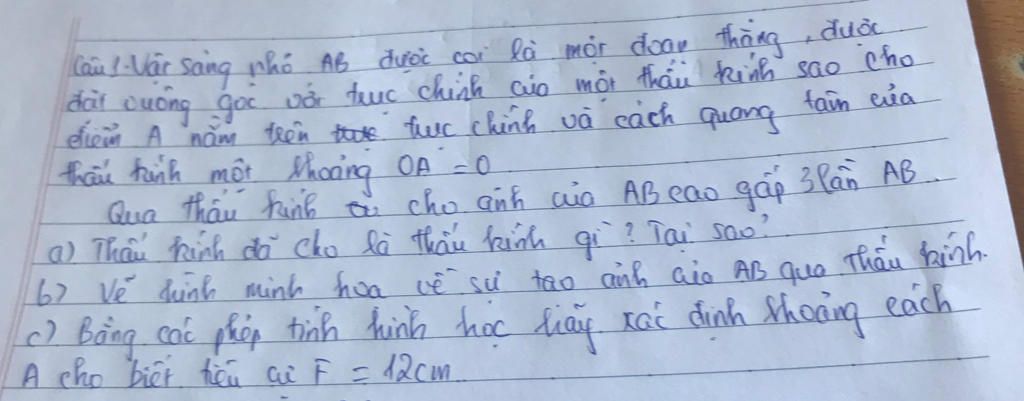 Câu 1. Vật sáng nhỏ AB được coi là một đoạn thẳng, được
đặt vuông góc với trục chính của một thấu kính sao cho
điểm A nằm trên trục chính và cách quang tâm của
thấu kính một khoảng OA = 0
Qua thấu kính cho ảnh của AB cao gấp 3 lần AB.
a) Thấu kính đã cho là thấu kính gì? Tại sao?
b) Vẽ hình minh hoạ về sự tạo ảnh của AB qua thấu kính.
c) Bằng các phép tính hình học hãy xác định khoảng cách
A cho biết tiêu cự F = 12cm